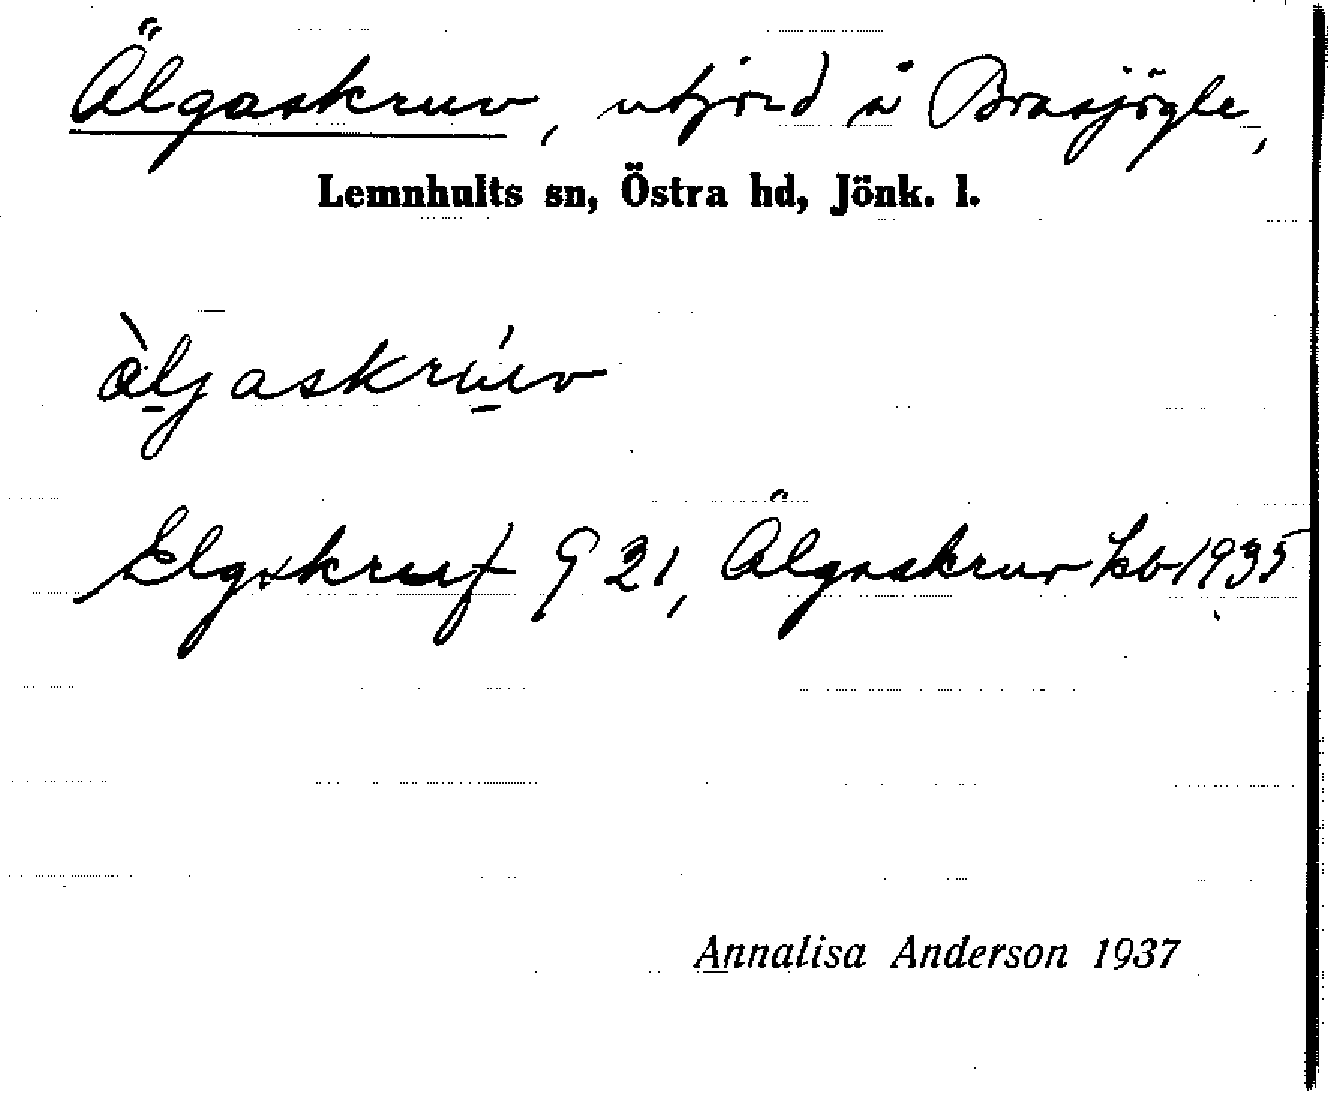 Älgaskruv, utjord å Brasjögle,
Lemnhults sn, Östra hd, Jönk. l.
æ̀ljaskrúv
Elgskruf G 21, Älgaskruv kb 1935
Annalisa Anderson 1937